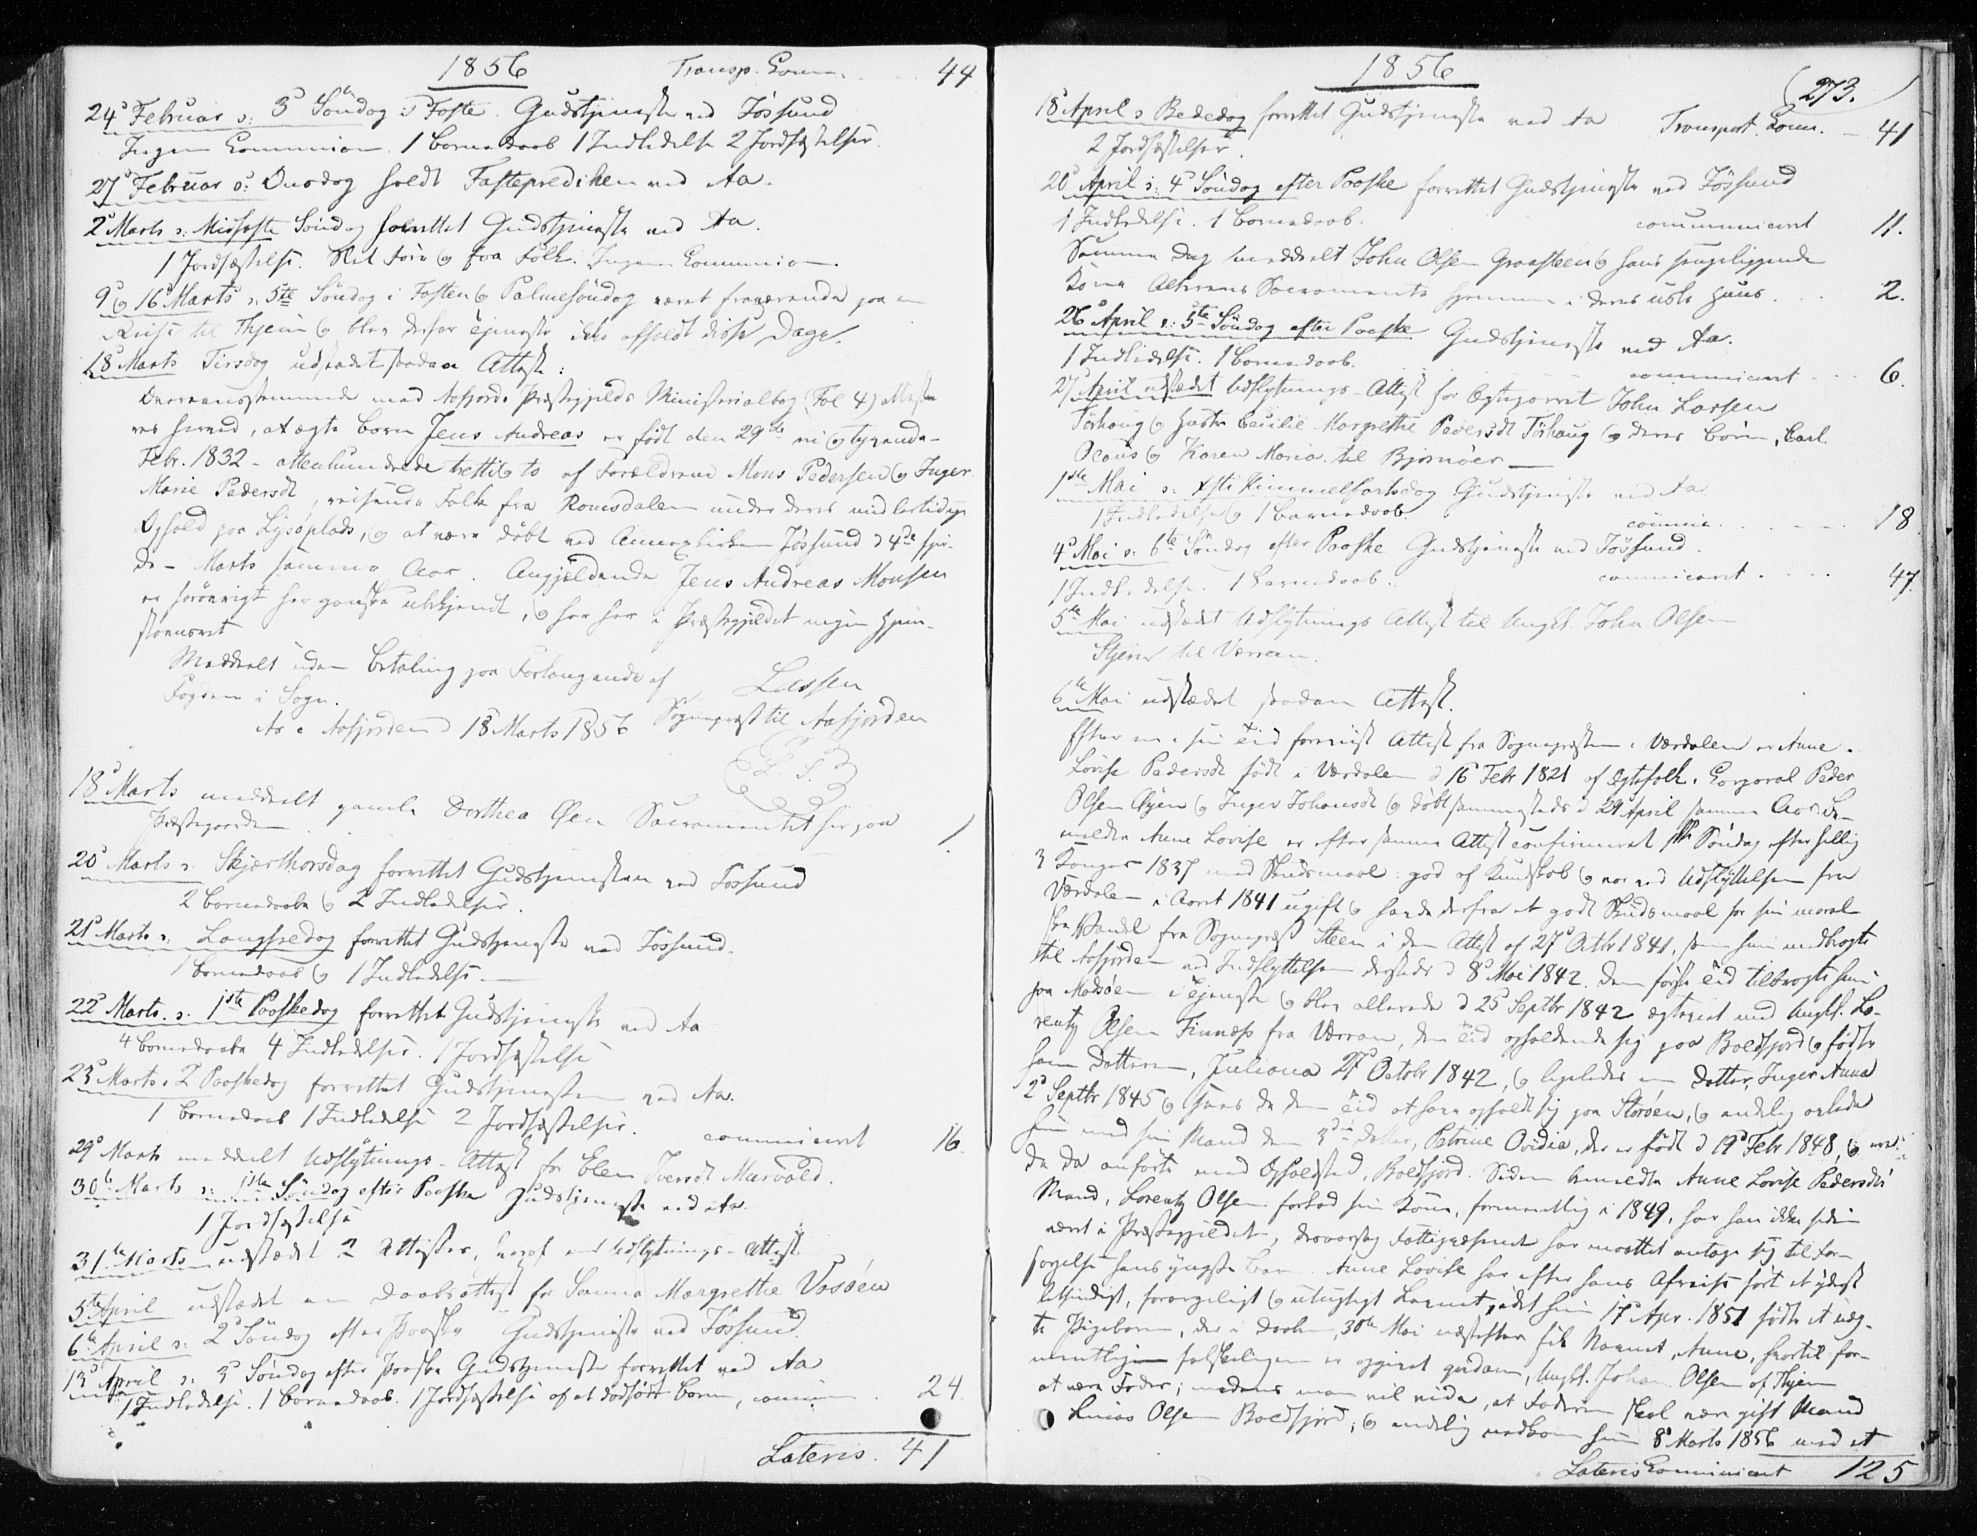 1856 Transp. Comm. 44
24de Februar o: 3de Søndag i Faste. Gudstjeneste ved Jøssund
Ingen Communion. 1 Barnedaab 1 Indledelse 2 Jordfæstelser.
27de Februar o: Onsdag holdt Fasteprediken ved Aa.
2de Marts o: Midfaste Søndag forrettet Gudstjeneste ved Aa.
1 Jordfæstelse. Slet Føre og faa Folk. Ingen Communion.
9de og 16de Marts o: 5te Søndag i Fasten og Palmesøndag været fraværende paa en
Reise til Thjem og blev derfor Tjeneste ikke afholdt disse Dage.
18de Marts Tirsdag udstædet saadan Attest:
Overeensstemmende med Aafjords Præstegjelds Ministerialbog (Fol 4) attester
res herved, at ægte Barn Jens Andreas er født den 29de ni og tyvende
Febr. 1832 - attenhundrede tretti og to af Forældrene Mons Pedersen og Inger
Marie Pedersdt, reisende Folk fra Romsdalen under deres midlertidige
Ophold paa Lysøplads, og at være døbt ved Annexkirken Jøssund d 4de fjer-
de - Marts samme Aar. Angjeldende Jens Andreas Monsen
er forøvrigt her ganske ubekjendt, og har her i Præstegjeldet ingen Hjem-
stavnsret
Meddeelt uden Betaling paa Forlangende af
Fogden i Sogn.
Aa i Aafjorden d 18 Marts 1856 Lassen
Sognepræst til Aafjorden
L. S.
18de Marts meddeelt gamle Dorthea Øen Sacramentet her paa
Præstegaarden 1.
20de Marts o: Skjærthorsdag forrettet Gudstjenesten ved Jøssund
2 Barnedaab og 2 Indledelser.
21de Marts o: Langfredag forrettet Gudstjeneste ved Jøssund.
1 Barnedaab og 1 Indledelse
22de Marts o: 1ste Paaskedag forrettet Gudstjeneste ved Aa
4 Barnedaab 4 Indledelser. 1 Jordfæstelse
23de Marts 2 Paaskedag forrettet Gudstjenesten ved Aa.
1 Barnedaab 1 Indledelse 2 Jordfæstelser. communiceret 16.
29de Marts meddeelt Udflytnings-Attest for Elen Iversdt Mærvold.
30te Marts o: 1ste Søndag efter Paaske Gudstjeneste ved Aa.
1 Jordfæstelse
31te Marts udstædet 2 Attester, heraf en Udflytnings-Attest
5te April udstædet en Daabsattest for Sanna Margrethe Vasøen
6te April o: 2de Søndag efter Paaske Gudstjeneste ved Jøssund
13de April o: 3de Søndag efter Paaske Gudstjeneste forrettet ved Aa
1 Indledelse. 1 Barnedaab. 1 Jordfæstelse af et dødfødt Barn, comm. 24.
Lateris. 41
1856
(273.)
18de April o: Bededag forrettet Gudstjeneste ved Aa Transport. Comm. - 41
2 Jordfæstelser.
20de April o: 4de Søndag efter Paaske forrettet Gudstjeneste ved Jøssund
1 Indledelse. 1 Barnedaab. communiceret 11.
Samme Dag meddeelt John Olsen Graasteen og hans sengeliggende
Kone Alterens Sacramente hjemme i deres usle Huus. 2.
26de April o: 5te Søndag efter Paaske Gudstjeneste ved Aa.
1 Indledelse. 1 Barnedaab. communiceret 6.
27de April udstædet Udflytnings-Attest for Ægteparret John Larsen
Tørhaug og Hustru Cecilie Margrethe Pedersdt Tørhaug og deres Børn, Carl
Olaus og Karen Maria til Bjørnøer
1ste Mai o: Xsti Himmelfartsdag Gudstjeneste ved Aa
1 Indledelse og 1 Barnedaab. commic. 18
4de Mai o: 6te Søndag efter Paaske Gudstjeneste ved Jøssund.
1 Indledelse. 1 Barnedaab. communiceret 47.
5te Mai udstædet Udflytnings Attest til Ungk. John Olsen
Stjern til Værran.
6te Mai udstædet saadan Attest.
Efter en i sin Tid foreviist Attest fra Sognepræsten i Værdalen er Anne
Lovise Pedersdt født i Værdalen d 16 Febr 1821 af Ægtefolk. Corporal Peder
Olsen Øyen og Inger Johansdt og døbt sammesteds d 29 April samme Aar. Be-
meldte Anne Lovise er efter samme Attest confirmeret 1ste Søndag efter hellig
3 Konger 1837 med Skudsmaal: god af Kundskab og var ved Udflyttelsen fra
Værdalen i Aaret 1841 ugift og havde derfra et godt Skudsmaal for sin moral-
ske Vandel fra Sognepræst Steen i den Attest af 27de Octbr 1841, som hun medbragte
til Aafjorden ved Indflyttelsen dersteds d 8de Mai 1842. Den første Tid tilbragte hun
paa Madsøen i Tjeneste og blev allerede d 25 Septbr 1842 ægteviet med Ungk. Lo-
rentz Olsen Finnæss fra Værran, den Tid opholdende sig paa Boldfjord og fødte
ham Datteren, Juliana 27de Octobr 1842, og ligeledes en Datter, Inger Anna
2de Septbr 1845 og hvis de den Tid at have opholdt sig paa Storøen, og endelig avlede
hun med sin Mand den 3die Datter, Petrine Ovidia, der er født d 19de Febr 1848, og
da da anførte med Opholdsted, Boldfjord. Siden bemeldte Anne Lovise Pedersdts
Mand, Lorentz Olsen forlod sin Kone, formentlig i 1849, har han ikke siden
været i Præstegjeldet, hvorfor Fattigvæsenet har maattet antage sig til For-
sørgelse hans yngste Barn. Anne Lovise har efter hans Afreise ført et yderst
letsindigt, forargeligt og utugtigt Levnet, idet hun 17de Apr. 1851 fødte et uæg-
te Pigebarn, der i Daaben 30te Mai næstefter fik Navnet, Anne, hvortil for-
mentligen falskeligen er opgivet gerdam, Ungk. Johan Olsen af Thjem
at være Fader; medens man vil vide, at Faderen skal være gift Mand
Lucas Olsen Boldfjord; og endelig nedkom hun 8de Marts 1856 med et
Lateris Communiceret 125